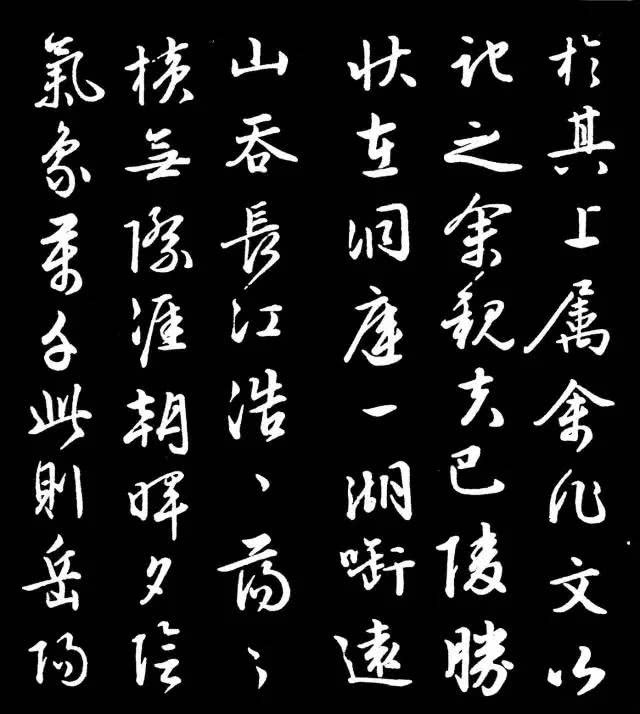 於其上属余作文以
記之余觀夫巴陵勝
状在洞庭一湖啣遠
山吞長江浩、蕩、
橫無際涯朝暉夕陰
氣象萬千此則岳陽